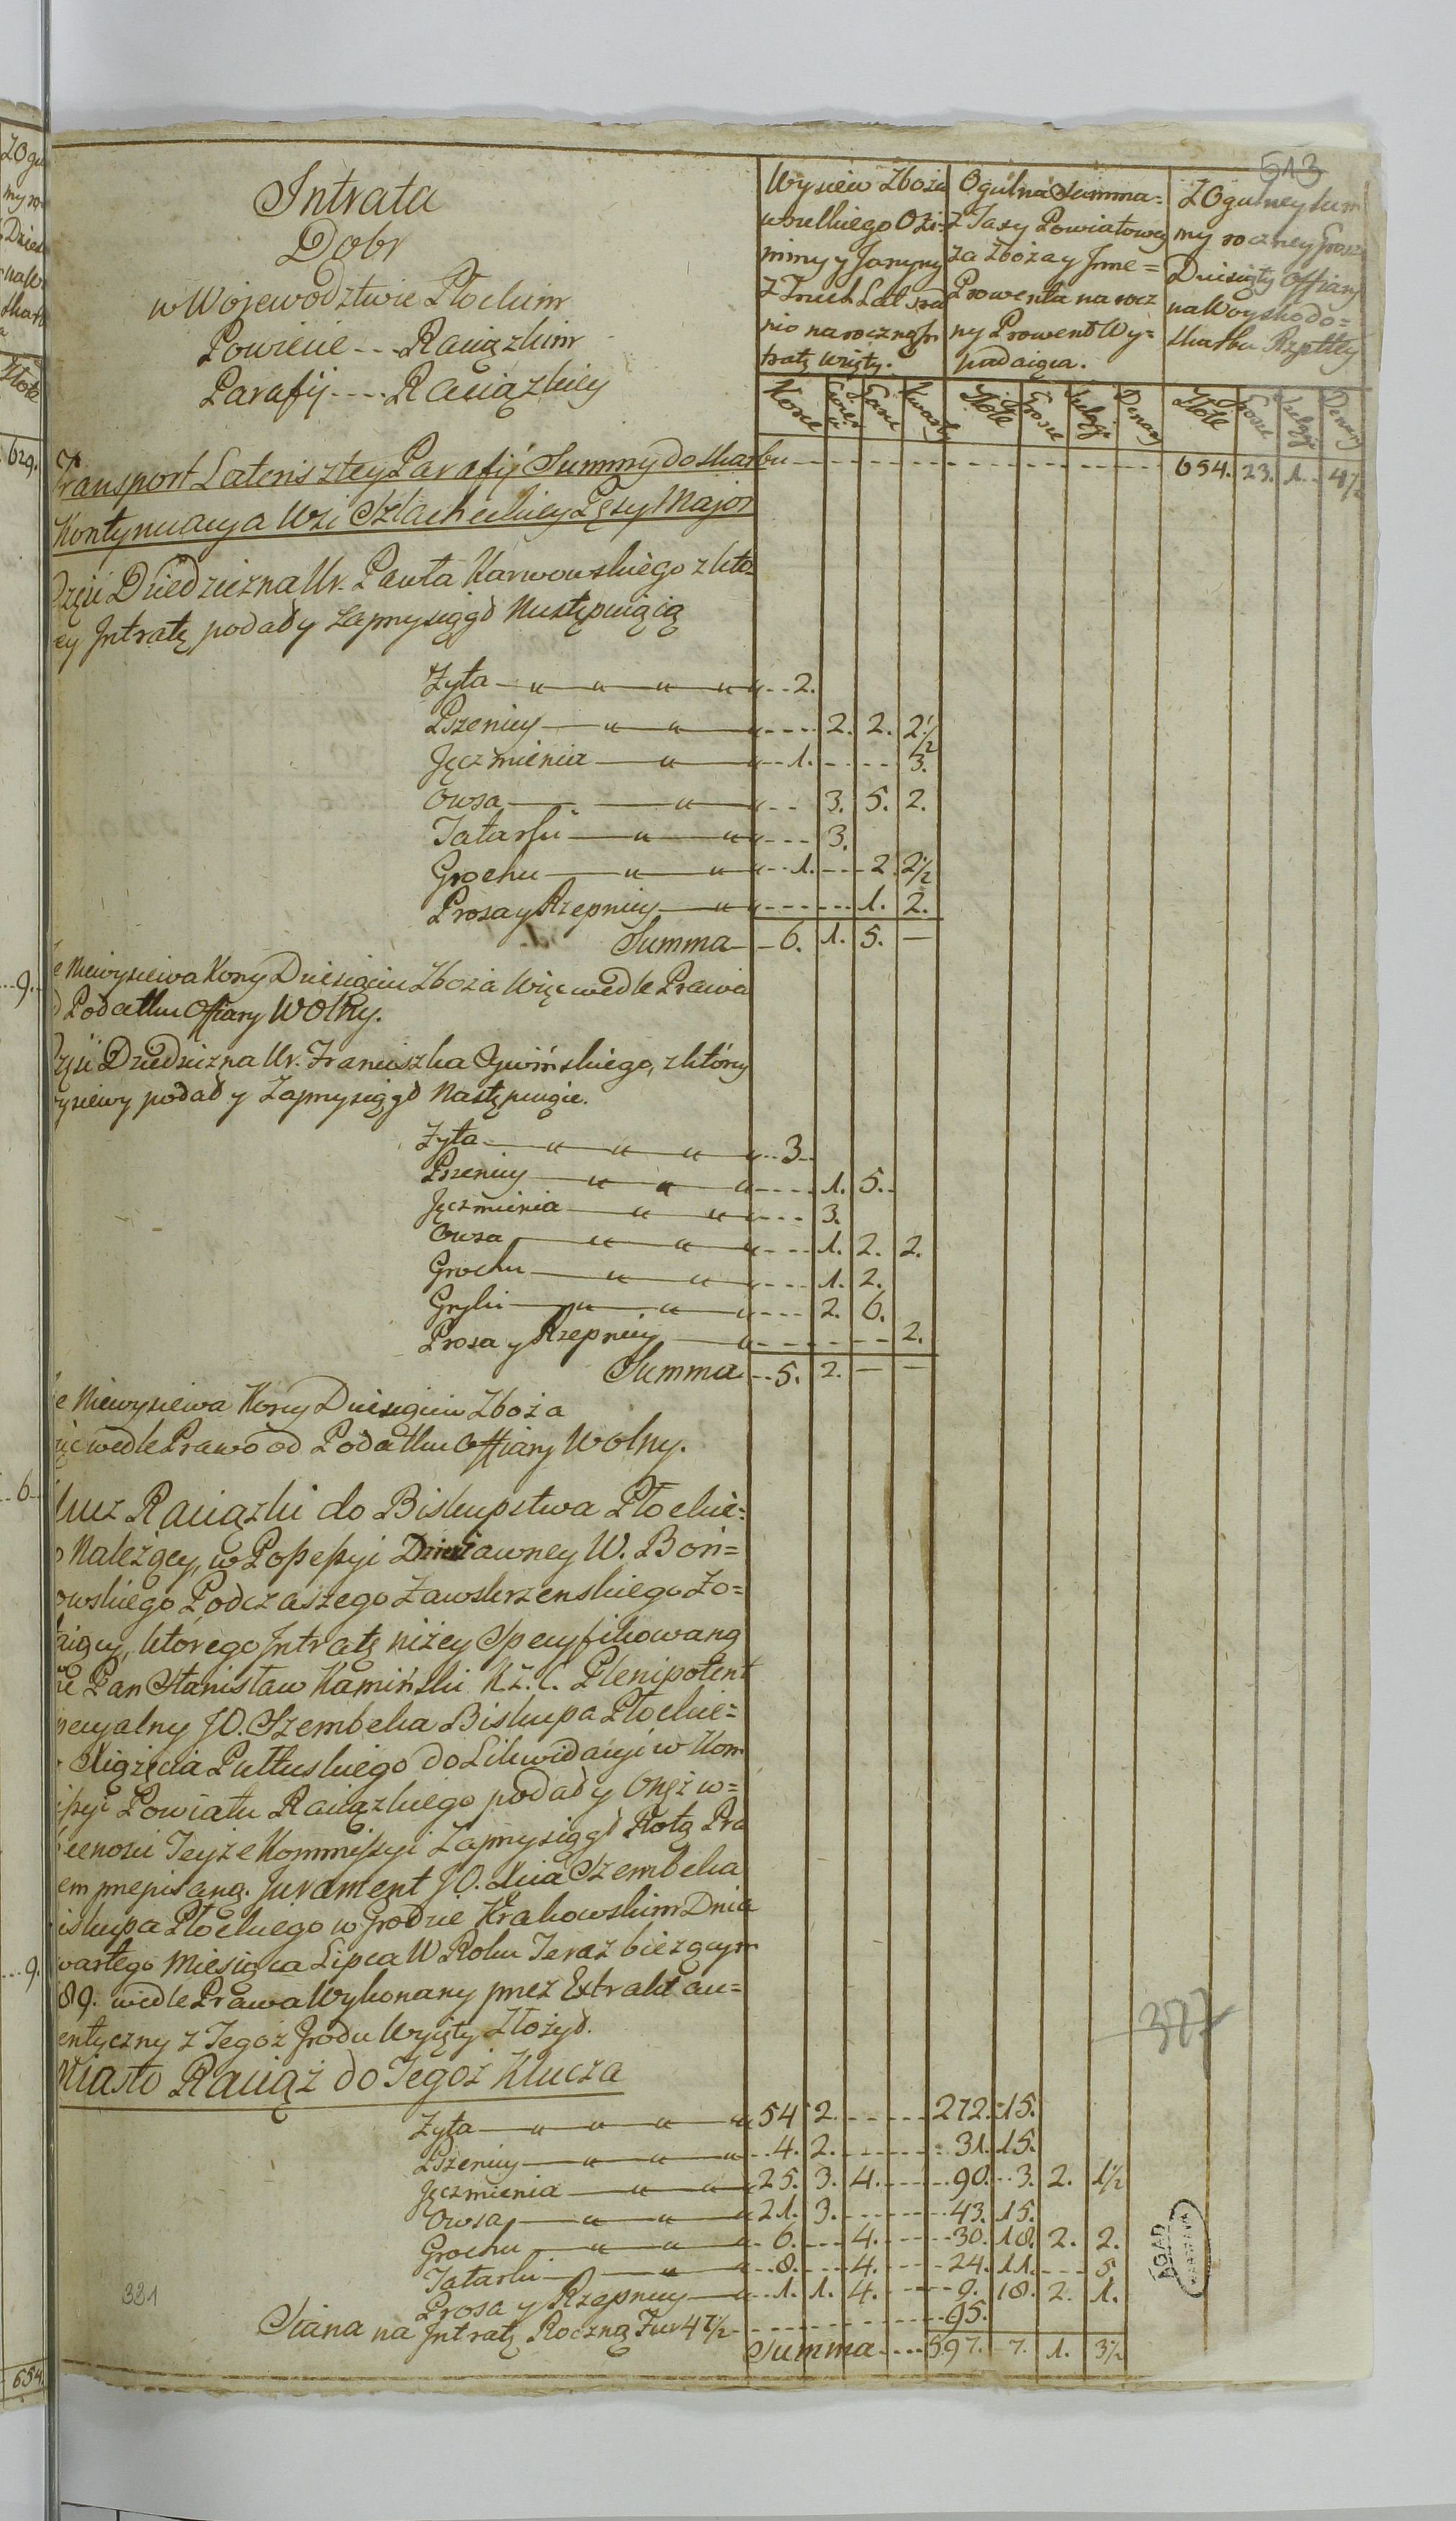 513
Intrata
Dobr
w Wojewodztwie Płockim
Powiecie --- Raciązkim
Parafij ---- Raciązkiey
Wysiew Zboża
wszelkiego Ozi-
miny y Jarzyny
z Trzech Lat śred
nio na roczną In
tratę wzięty.
Ogulna Summa
z Taxy Powiatowey
za Zboża y Inne
Prowenta na rocz
ny Prowent Wy-
padaiąca.
Z Ogulney Sum
my roczney Grosz
Dziesiąty Offiary
na Woysko do
Skarbu Rzpltey
Korce Garce Kwarty Złote Grosze Szelągi Denary Złote Grosze Szelągi Denary
Transport Lateris z tey Parafij Summy do Skarbu 654. 23. 1. 4½
Kontynuacya Wsi Szlacheckiey Lęsy Major
Dziedziczna Ur. Pawła Karwowskiego z któ-
ey Intratę podał y Zaprzysiągł Następuiącą
Zyta 2.
Pszenicy 2. 2. 2½
Jęczmienia 1. 3.
Owsa 3. 5. 2.
Tatarki 3.
Grochu 1. 2. 2½
Prosa y Rzepnicy 1. 2.
Summa 6. 1. 5. —
e Niewysiewa Korcy Dziesięciu Zboża Więc wedle Prawa
d Podatku Offiary Wolny.
Dziedziczna Ur. Franciszka Cywińskiego, z którey
ysiewy podał y Zaprzysiągł Następuiące.
Zyta 3
Pszenicy 1. 5.
Jęczmienia 3.
Owsa 1. 2. 2.
Grochu 1. 2.
Gryki 2. 6.
Prosa y Rzepnicy 2.
Summa 5. 2. — —
e Niewysiewa Korcy Dziesięciu Zboża
ięc wedle Prawo od Podatku Offiary Wolny.
lucz Raciązki do Biskupstwa Płockie-
o Należący, w Possessyi Dzierżawney W. Boń-
owskiego Podczaszego Zawskrzenskiego Zo-
taiący, którego Intratę niżey Specyfikowaną
Pan Stanisław Kamiński K.Z.C. Plenipotent
pecyalny JO. Szembeka Biskupa Płockie-
Xiążęcia Pułtuskiego do Likwidacyi w Kom
issyi Powiatu Raciązkiego podał y Onęż w-
becnosci Teyże Kommissyi Zaprzysiągł Rotą Pra
em przepisaną. Jurament JO. Xcia Szembeka
iskupa Płockiego w Grodzie Krakowskim Dnia
wartego Miesiąca Lipca W Roku Teraz bieżącym
89. wedle Prawa Wykonany przez Extrakt au-
entyczny z Tegoż Grodu Wyięty Złożył.
377
Miasto Raciąż do Tegoż Klucza
Zyta 54 2. 272. 15.
Pszenicy 4. 2. 31. 15.
Jęczmienia 25. 3. 4. 90. 3. 2. 1½
Owsa 21. 3. 43. 15.
Grochu 6. 4. 30. 18. 2. 2.
Tatarki 8. 4. 24. 11. 5
Prosa y Rzepnicy 1. 1. 4. 9. 18. 2. 1.
Siana na Intratę Roczną Fur 47½ 95.
Summa 597. 7. 1. 3½
331
AGAD
WARSZAWA
629.
9.
6
9.
654.